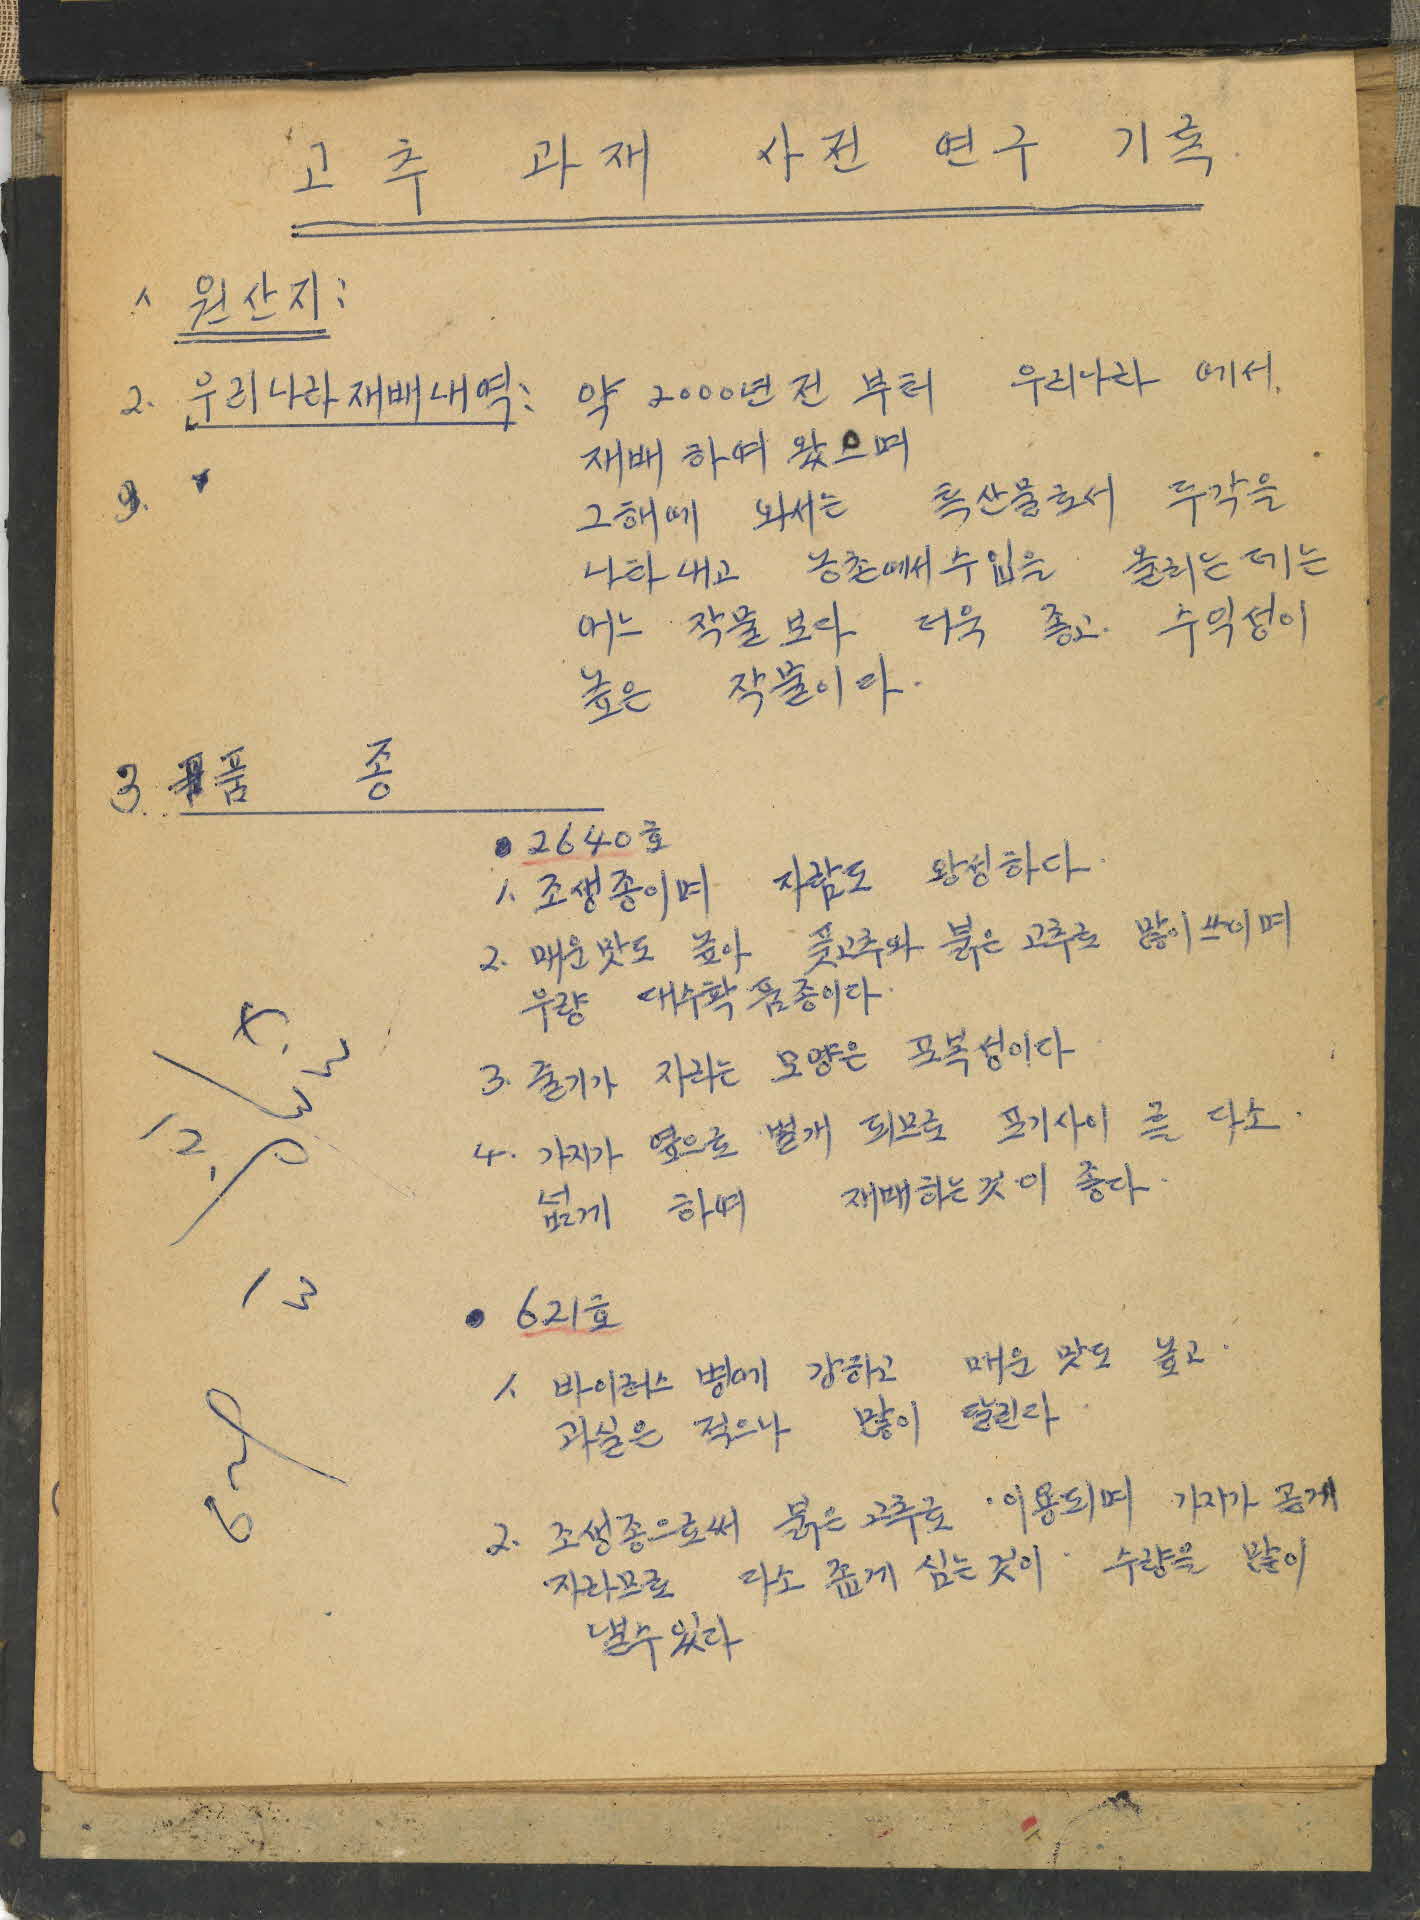 고추 과재 사전 연구 기록.
1. 원산지:
2. 우리나라재배내역: 약 2000년전 부터 우리나라 에서.
재배 하여 왔으며
3.
그해에 와서는 특산물로서 두각을
나타내고 농촌에서 수입을 올리는데는
어느 작물보다 더욱 좋고. 수익성이
높은 작물이다.
3. 품 종
• 2640호
1. 조생종이며 자람도 왕성하다.
2. 매운맛도 높아 풋고추와 붉은 고추로 많이 쓰이며
우량 대수확 품종이다.
3. 줄기가 자라는 모양은 포복성이다
4. 가지가 옆으로 벌개 되므로 포기사이 를 다소.
넓게 하여 재배하는것이 좋다.
• 621호
1. 바이러스 병에 강하고 매운 맛도 높고.
과실은 적으나 많이 달린다.
2. 조생종으로써 붉은 고추로 이용되며 가지가 곧게
자라므로 다소 좁게 심는것이 수량을 많이
낼수있다
12.
13